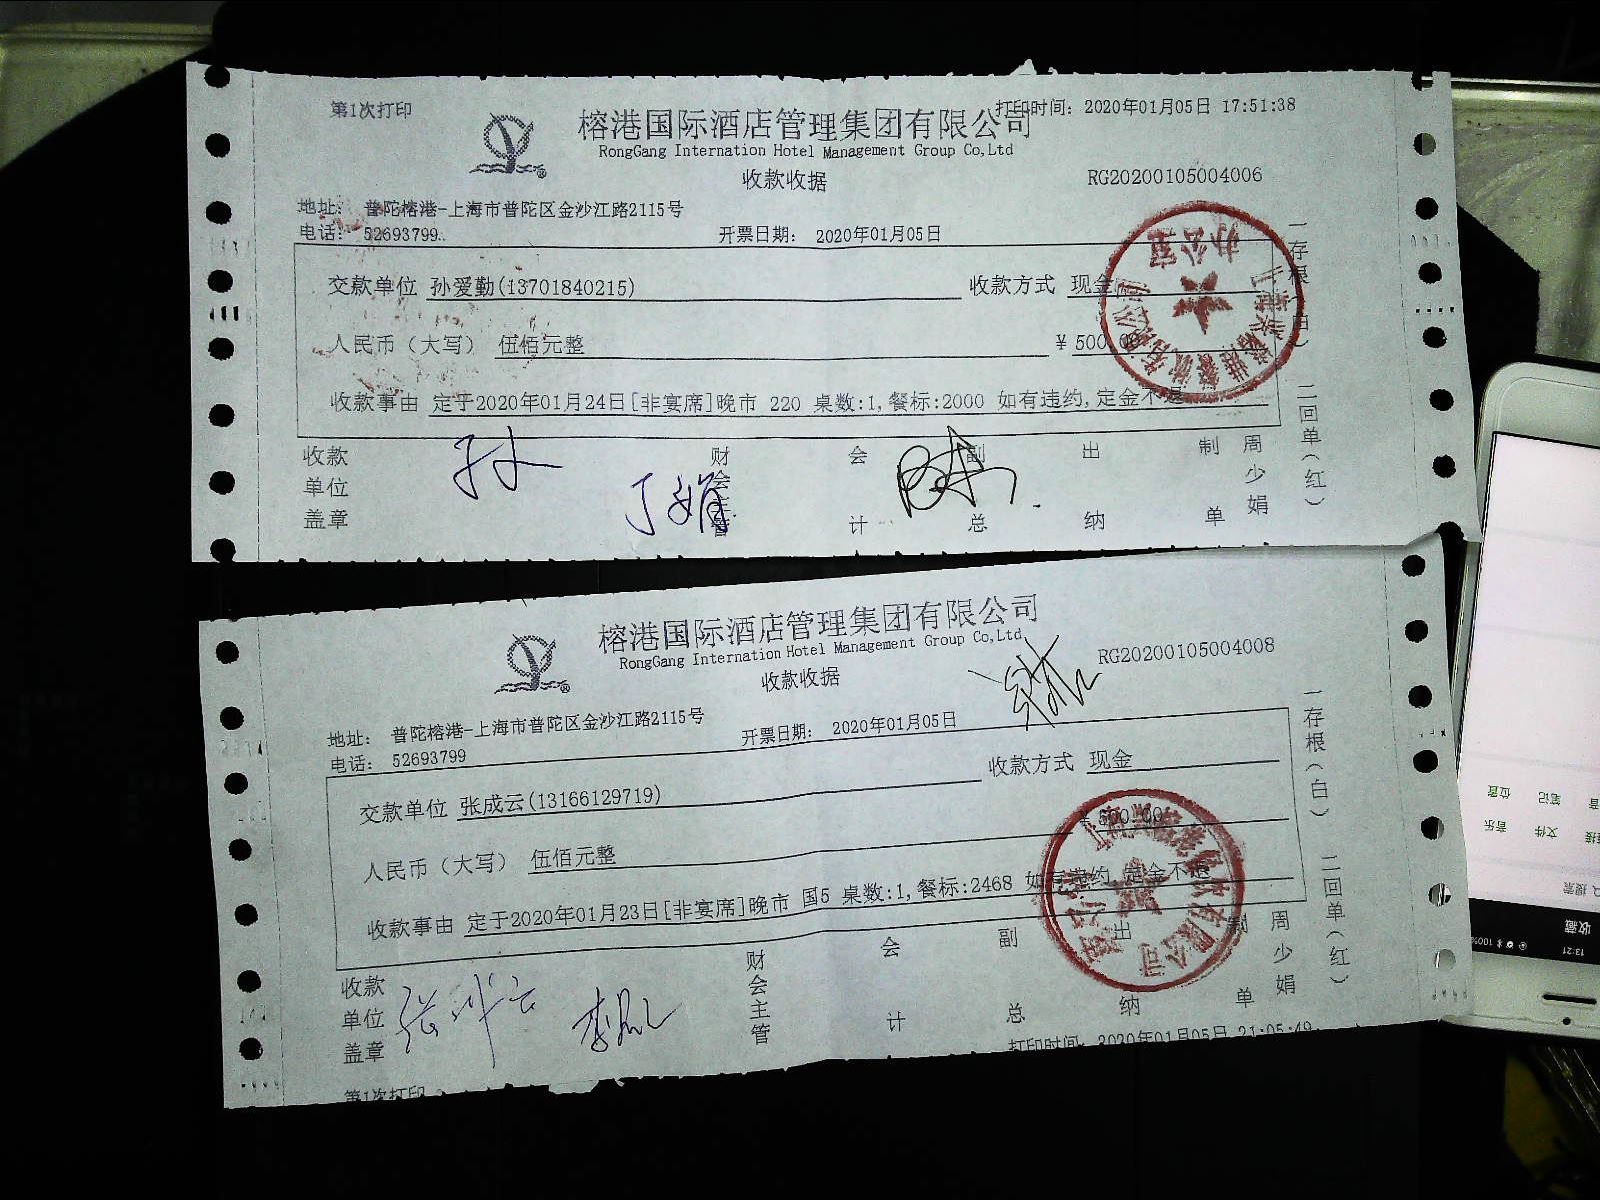 第1次打印
打印时间: 2020年01月05日 17:51:38
榕港国际酒店管理集团有限公司
RongGang Internation Hotel Management Group Co,Ltd
收款收据
RG20200105004006
地址: 普陀榕港-上海市普陀区金沙江路2115号
电话: 52693799
开票日期: 2020年01月05日
交款单位 孙爱勤(13701840215) 收款方式 现金
人民币（大写） 伍佰元整 ¥ 500.00
收款事由 定于2020年01月24日[非宴席]晚市 220 桌数:1,餐标:2000 如有违约,定金不退
收款单位盖章 财会主管 会计 副总 出纳 制单 周少娟
孙
丁娟
一存根（白） 二回单（红）
办公室
榕港国际酒店管理集团有限公司
RongGang Internation Hotel Management Group Co,Ltd
收款收据
RG20200105004008
地址: 普陀榕港-上海市普陀区金沙江路2115号
电话: 52693799
开票日期: 2020年01月05日
交款单位 张成云(13166129719) 收款方式 现金
人民币（大写） 伍佰元整 ¥ 500.00
收款事由 定于2020年01月23日[非宴席]晚市 国5 桌数:1,餐标:2468 如有违约,定金不退
收款单位盖章 财会主管 会计 副总 出纳 制单 周少娟
张成云
一存根（白） 二回单（红）
第1次打印
打印时间: 2020年01月05日 21:05:49
13:21
100%
收藏
搜索
文件
音乐
笔记
位置